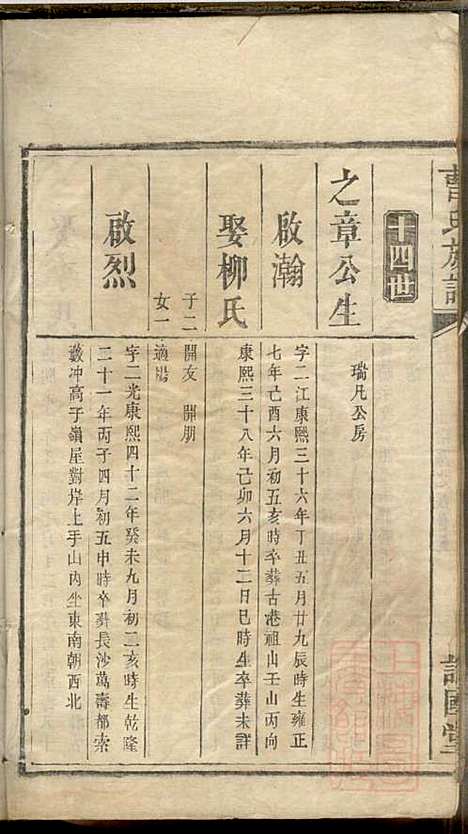 曹氏族譜
十四世
瑞凡公房
之章公生
啟瀚
字二江康熙三十六年丁丑五月廿九辰時生雍正
七年己酉六月初五亥時卒葬古港祖山壬山丙向
娶柳氏
康熙三十八年己卯六月十二日巳時生卒葬未詳
子二 開友 開朋
女一 適
啟烈
字二光康熙四十二年癸未九月初二亥時生乾隆
二十一年丙子四月初五申時卒葬長沙萬壽都索
藪沖高子嶺屋對岸上手山內坐東南朝西北